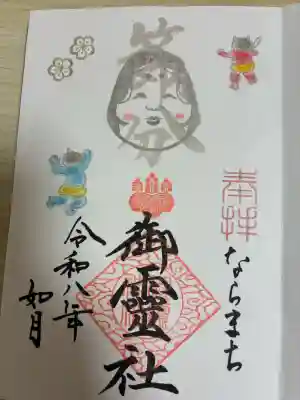 節分
奉拝
ならまち
御霊社
令和八年
如月